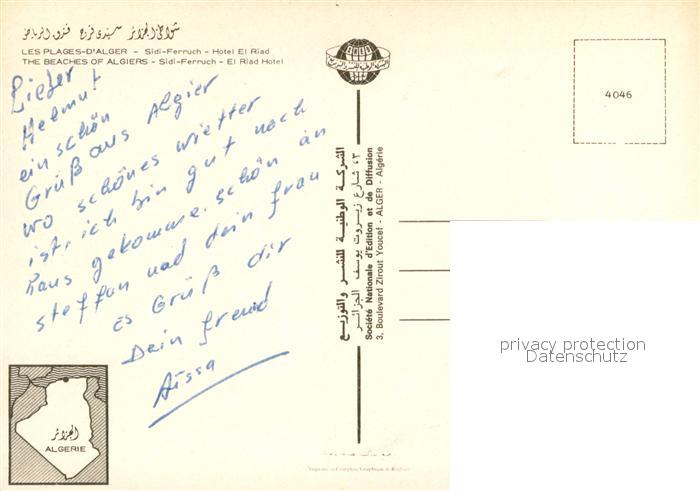 شواطئ الجزائر سيدي فرج فندق الرياض
LES PLAGES-D'ALGER - Sidi-Ferruch - Hotel El Riad
THE BEACHES OF ALGIERS - Sidi-Ferruch - El Riad Hotel
Lieber
Helmut
ein schön
Grüß aus Algier
wo schönes wietter
ist, ich bin gut noch
haus gekomme. schön an
steffan und dein frau
es Grüß dir
Dein freund
Aissa
4046
الشركة الوطنية للنشر والتوزيع
٤٣ شارع زيروت يوسف الجزائر
Société Nationale d'Edition et de Diffusion
3, Boulevard Zirout Youcef - ALGER - Algérie
privacy protection
Datenschutz
الجزائر
ALGERIE